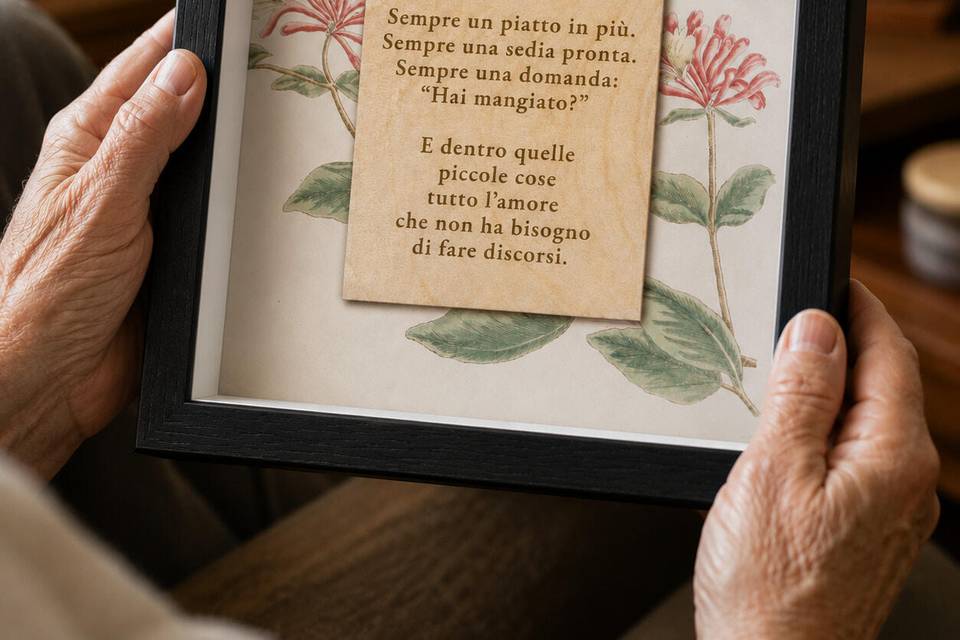 Sempre un piatto in più.
Sempre una sedia pronta.
Sempre una domanda:
“Hai mangiato?”
E dentro quelle
piccole cose
tutto l’amore
che non ha bisogno
di fare discorsi.